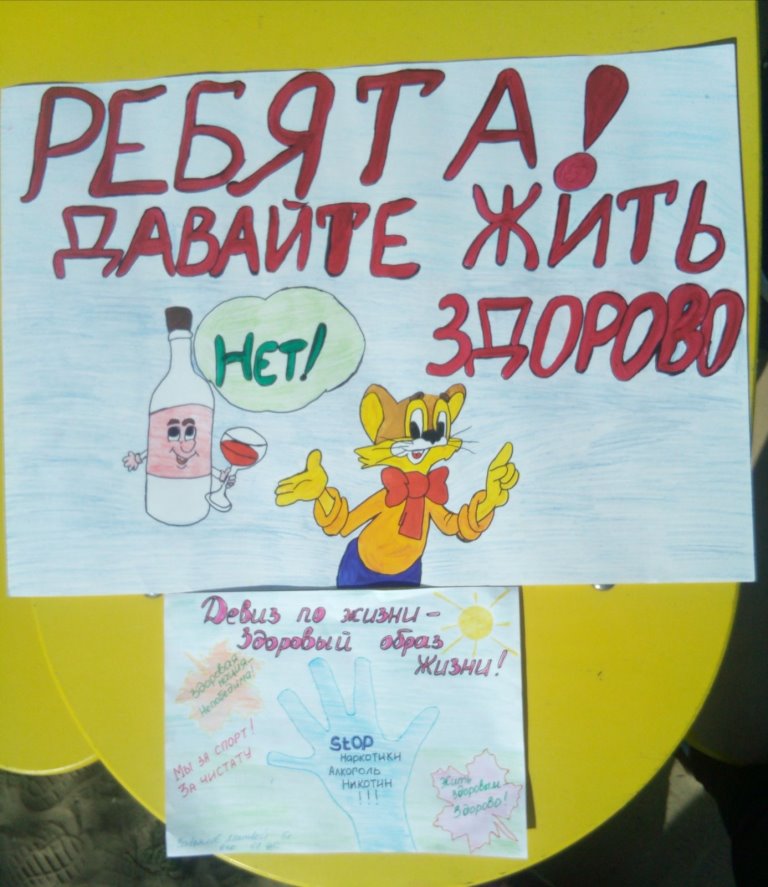 РЕБЯТА!
ДАВАЙТЕ ЖИТЬ
ЗДОРОВО
НЕТ!
Девиз по жизни –
Здоровый образ
Жизни!
Здоровая
нация
Непобедима!
Мы за спорт!
За чистату
StOP
Наркотики
Алкоголь
Никотин
!!!
Жить
здоровым
Здорово!